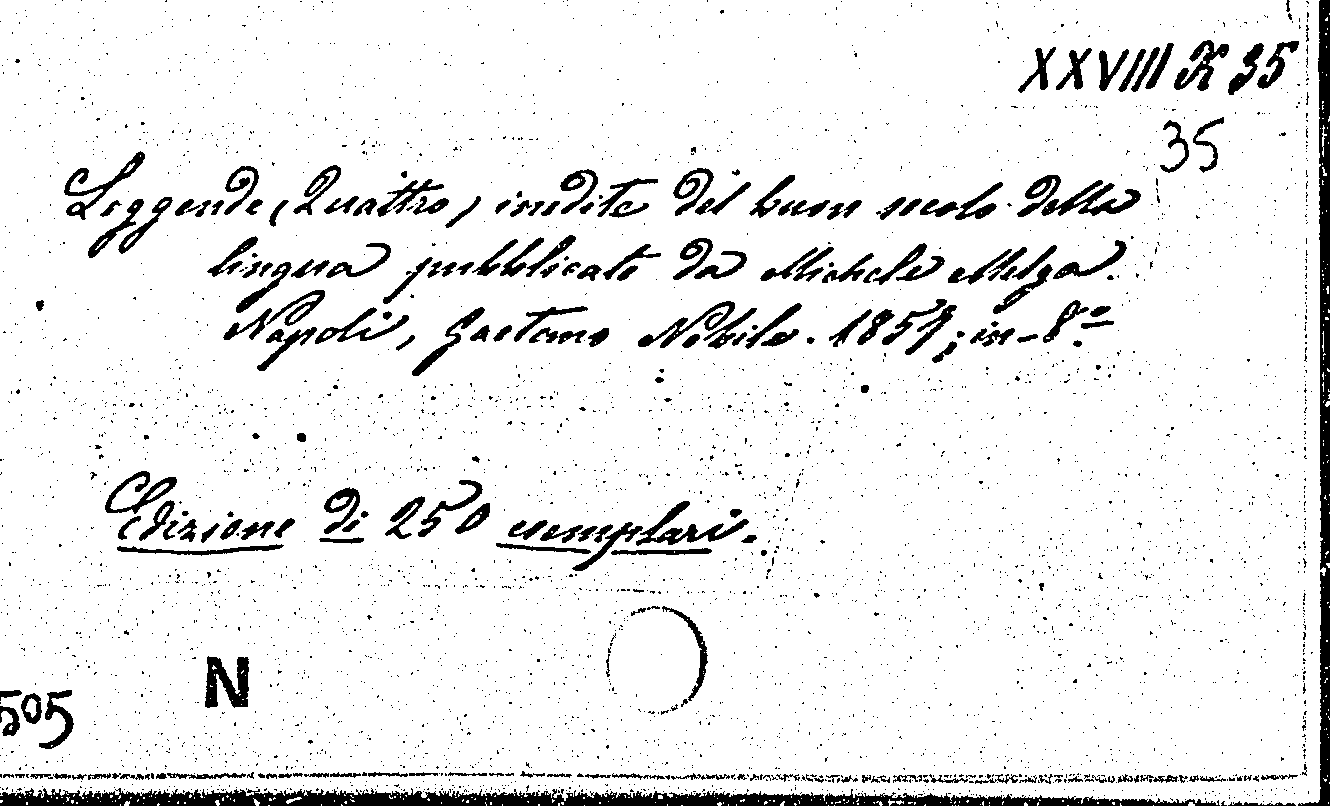 XXVIII K 35
35
Leggende (Quattro) inedite del buon secolo della
lingua pubblicate da Michele Melga.
Napoli, Gaetano Nobile. 1857; in-8.º
Edizione di 250 esemplari.
N
505